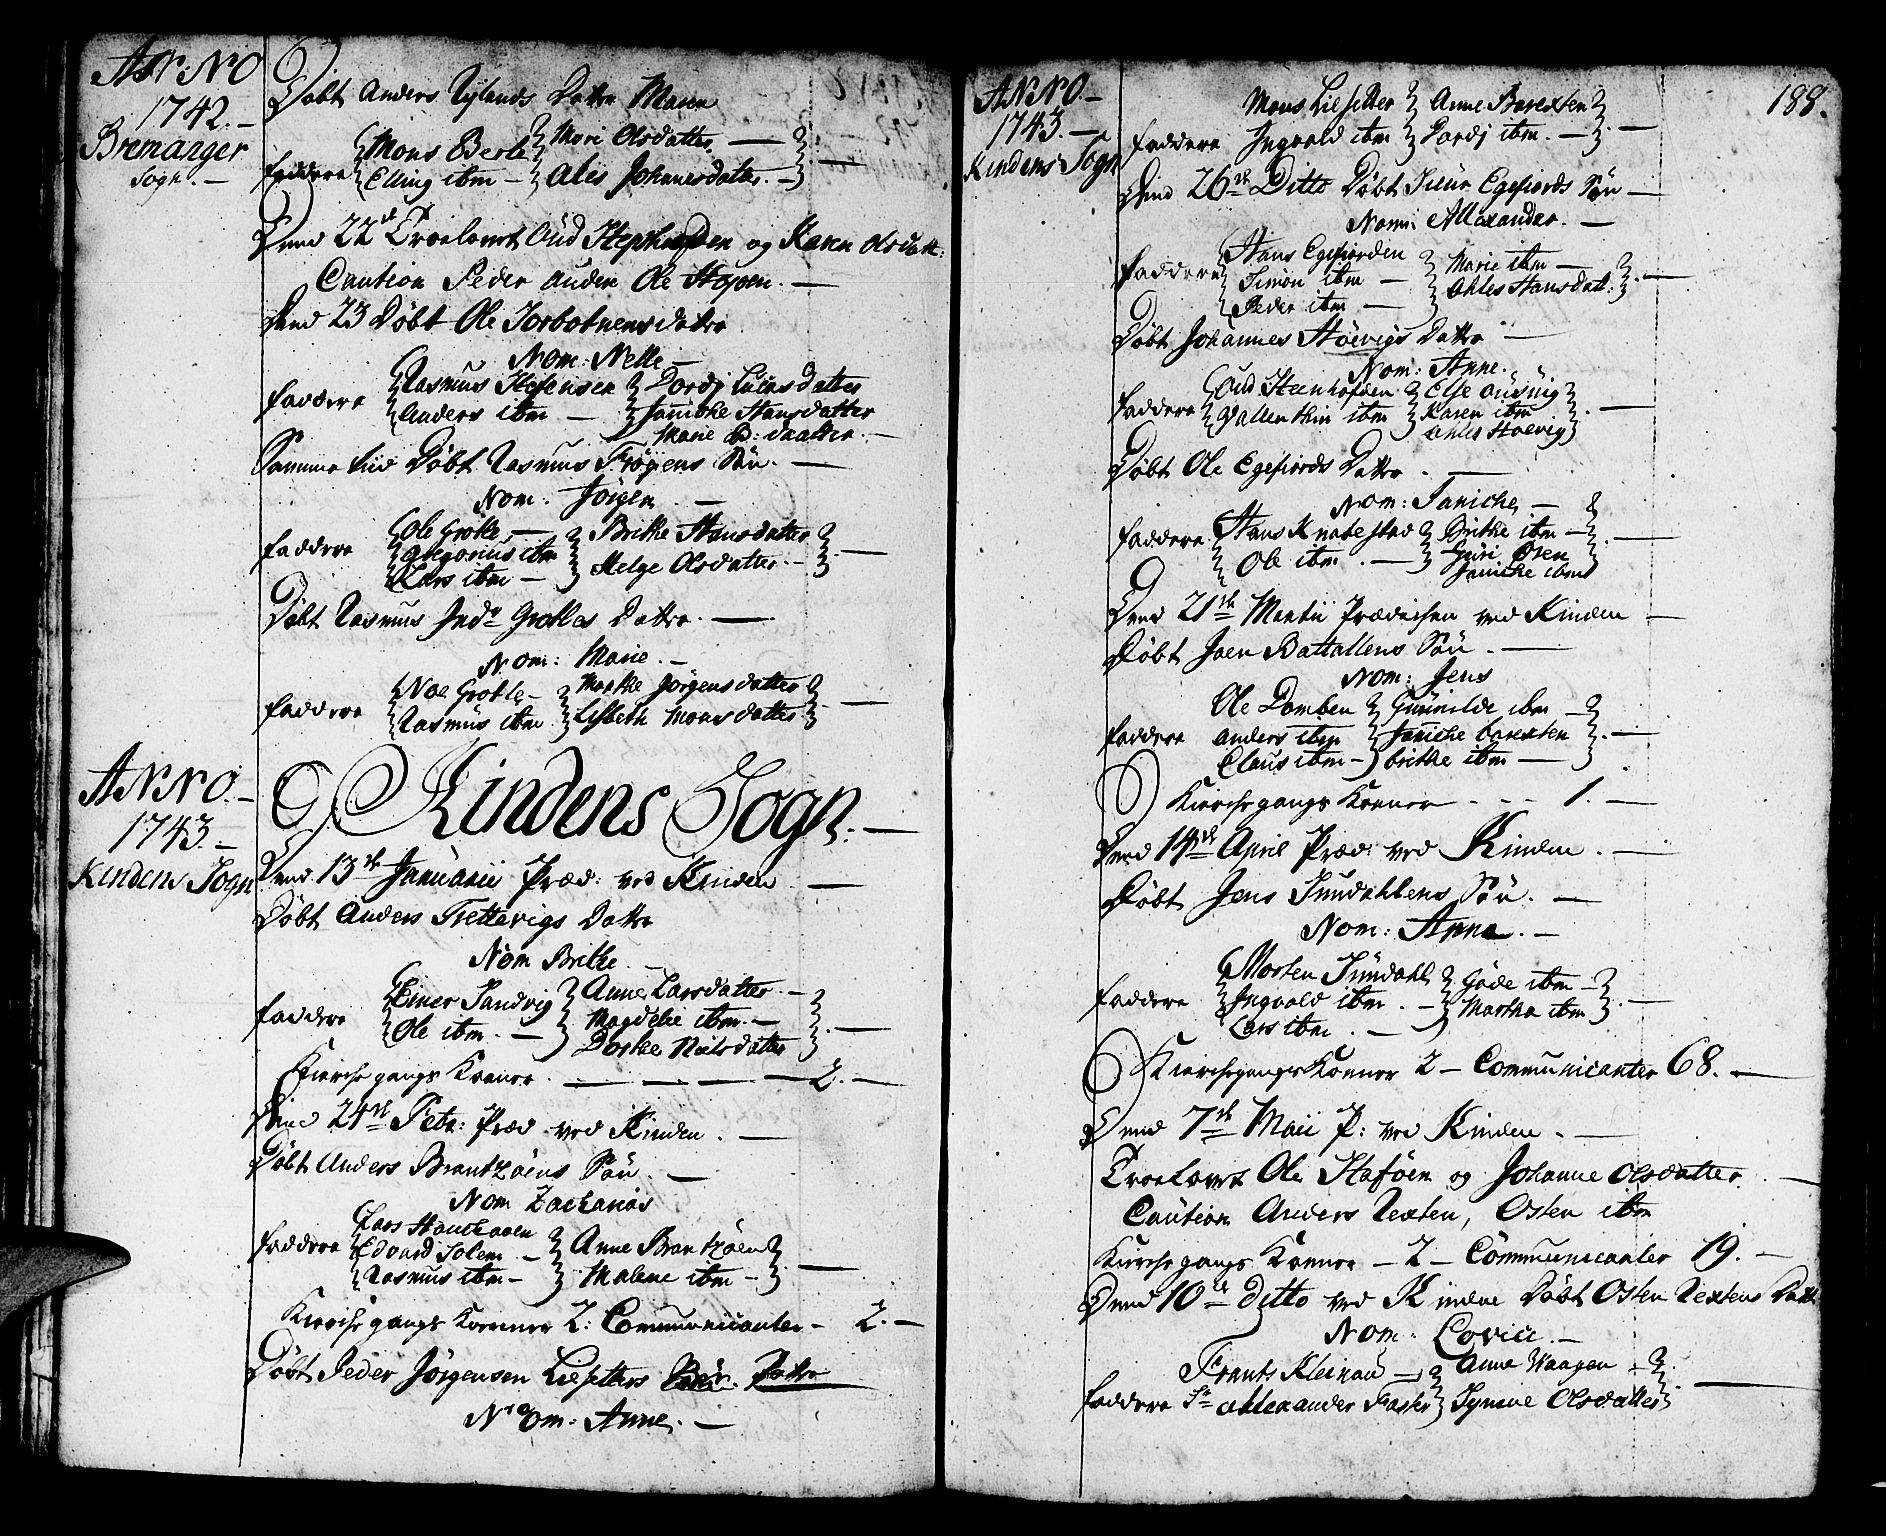 ANNO
1742.
Bremanger
Sogn.
Døbt Anders Rylands Datter Maren
Faddere Mons Berle Mari Olsdatter
Elling ibm Ales Johannesdatter
Dend 22de Troelovet Oud Stephensen og Karen Olsdatt:
Caution Peder Auden Ole Hopen.
Dend 23 Døbt Ole Torbotnens datter
Nom: Nelle
Faddere Rasmus Stefensen Dordj Luinsdatter
Anders ibm Janniche Hansdatter
Marie daatter.
Samme tiid Døbt Rasmus Frøyens Søn.
Nom: Jørgen
Faddere Ole Grotle Brithe Hansdatter
Gregorius ibm Helge Olsdatter
Lars ibm
Døbt Rasmus Grotles Datter.
Nom: Marie.
Faddere Noe Grotle Marthe Jørgensdatter
Rasmus ibm Lisbeth Monsdatter
ANNO
1743.
Kindens Sogn
Kindens Sogn.
Dend 13de Januarii Præd: ved Kinden
Døbt Anders Trettevigs Datter
Nom Brithe.
Faddere Einer Sandvig Anne Larsdatter
Ole ibm. Magdele ibm.
Dorthe Nielsdatter
Kierche gangs Konner. 2.
Dend 24de Febr: Præd ved Kinden.
Døbt Anders Brantzøens Søn.
Nom Zacharias
Faddere Lars
Edvard Solem Anne Brantzøen
Rasmus ibm Malene ibm
Kierche gangs Konner 2: Communicanter 2.
Døbt Peder Jørgensen Liesetters Datter
Nom: Anne.
ANNO
1743.
Kindens Sogn
188.
Mons Liesetter Anne Barexten
Faddere Ingvald ibm Dordj ibm.
Dend 26de Ditto Døbt Siur Egefiords Søn
Nom: Allexander.
Faddere Hans Egefiorden Marie ibm
Simon ibm Ahles Hansdatt:
Peder ibm
Døbt Johannes Høevigs Datter
Nom: Anne.
Faddere Oud Steenhofden Else
Vallenthin ibm Karen ibm
Ahles Høevig
Døbt Ole Egefiords Datter.
Nom: Janiche
Faddere Hans Knabestad Brithe ibm
Ole ibm. Guri Øren
Janiche ibm
Dend 21de Martii Prædichen ved Kinden
Døbt Joen Battallens Søn.
Nom: Jens
Ole Domben Gunnilde ibm
Faddere Anders ibm Janniche barexten
Claus ibm brithe ibm
Kierche gangs Konner 1.
Dend 14de April Præd: ved Kinden.
Døbt Jens Inndahlens Søn.
Nom: Anna.
Morten Inndahl Gøde ibm
Faddere Ingvald ibm. Martha ibm
Lars ibm.
Kierche gangs Konner 2 Communicanter 68.
Dend 7de Maii P: ved Kinden.
Troelovet Ole Staføen og Johanne Olsdatter.
Caution Anders Rexten, Osten ibm
Kierche gangs Konner 2 Communicanter 19.
Dend 10de Ditto ved Kinden Døbt Osten Rextens Datt
Nom: Lovise.
Frants Kleinau Anne Waagen
Faddere Sr Allexander Synneve Olsdatter